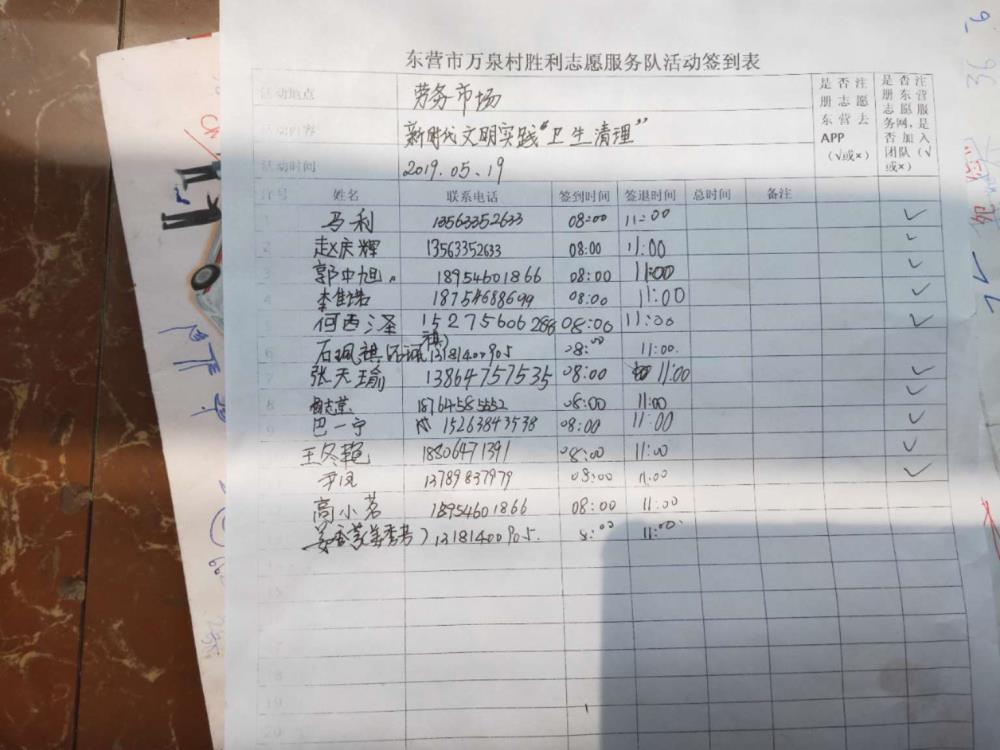 东营市万泉村胜利志愿服务队活动签到表
活动地点 劳务市场
活动内容 新时代文明实践“卫生清理”
活动时间 2019.05.19
是否注册志愿东营去APP（√或×）
是否注册东营志愿服务网，是否加入团队（√或×）
序号 姓名 联系电话 签到时间 签退时间 总时间 备注
1 马利 13563352633 08:00 11:00 ✓
2 赵庆辉 13563352633 08:00 11:00 ✓
3 郭中旭 18954601866 08:00 11:00 ✓
4 李佳诺 18754688699 08:00 11:00 ✓
5 何西泽 15275606288 08:00 11:00 ✓
6 石珮祺 13181400905 08:00 11:00.
7 张天瑜 13864757535 08:00 11:00 ✓
8 18764585552 08:00 11:00 ✓
9 巴一宁 15263843538 08:00 11:00 ✓
王冬艳 18806471391 08:00 11:00 ✓
13789837979 08:00 11:00 ✓
高小茗 18954601866 08:00 11:00
13181400905. 8:00 11:00.
18
19
20